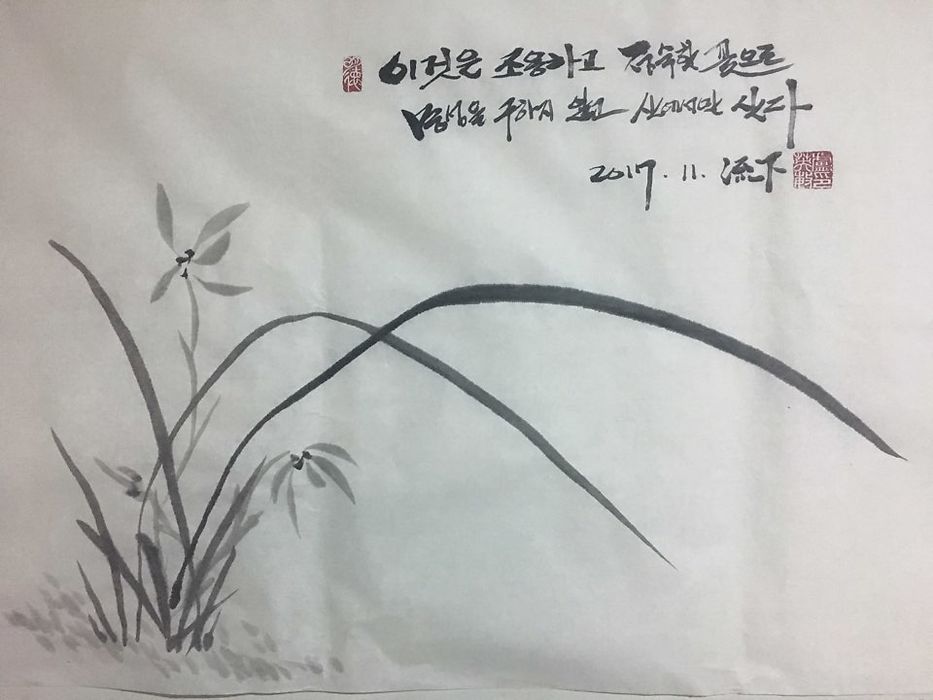 이것은 조용하고 정숙한 꽃으로
명성을 구하지 않고 산에서만 산다
2017. 11. 流下